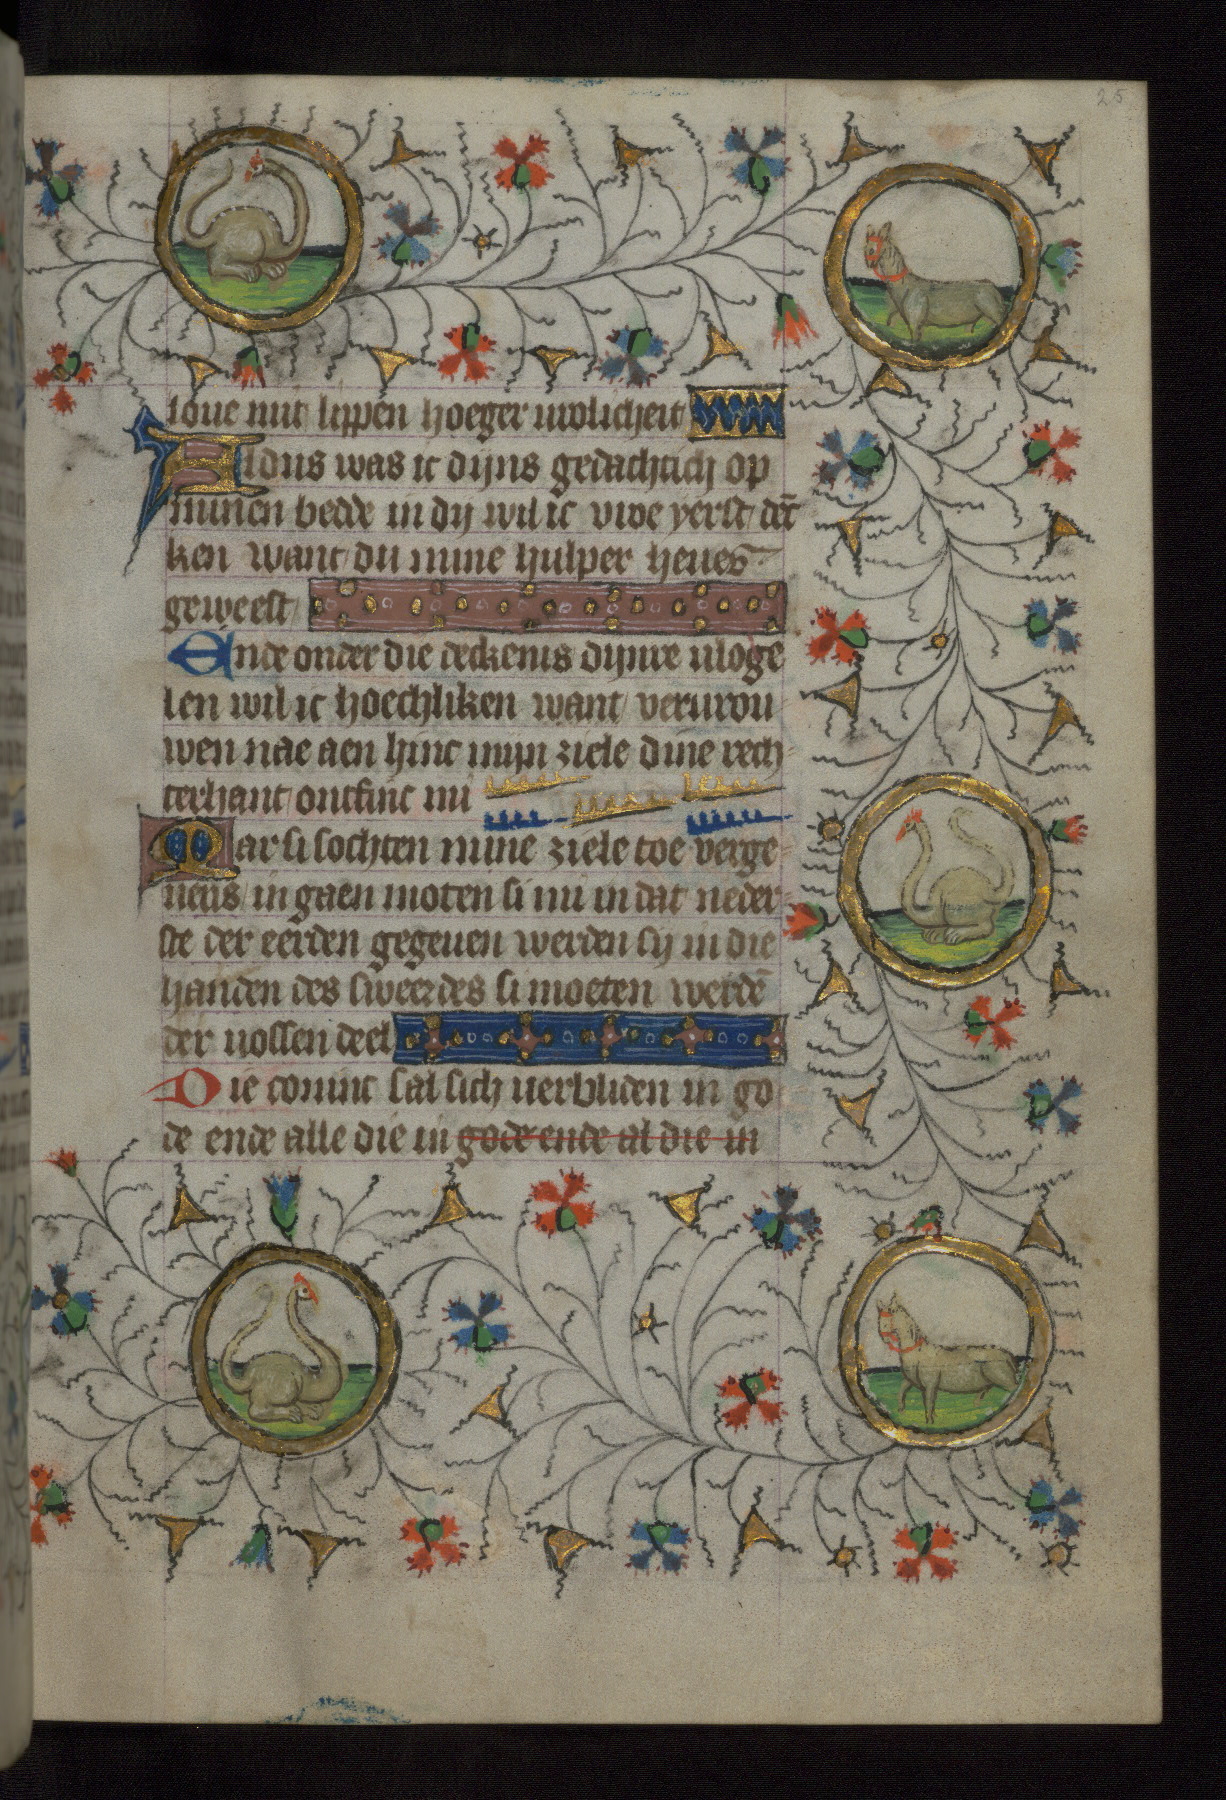 25
loue mit lippen hoeger urolicheit
Aldus was ic dijns gedachtich op
minen bedde in dij wil ic vroe yerst dēc
ken want du mine hulper heues
geweest
Ende onder die deckenis dijnre uloge
len wil ic hoechliken want verurou
wen nae aen hinc mijn ziele dine rech
terhant ontfinc mi
Mar si sochten mine ziele toe verge
uens in gaen moten si nu in dat neder
ste der eerden gegeuen werden sij in die
handen des sweerdes si moeten werdē
der uossen deel
Die coninc sal sich uerbliden in go
de ende alle die in gode ende al die in